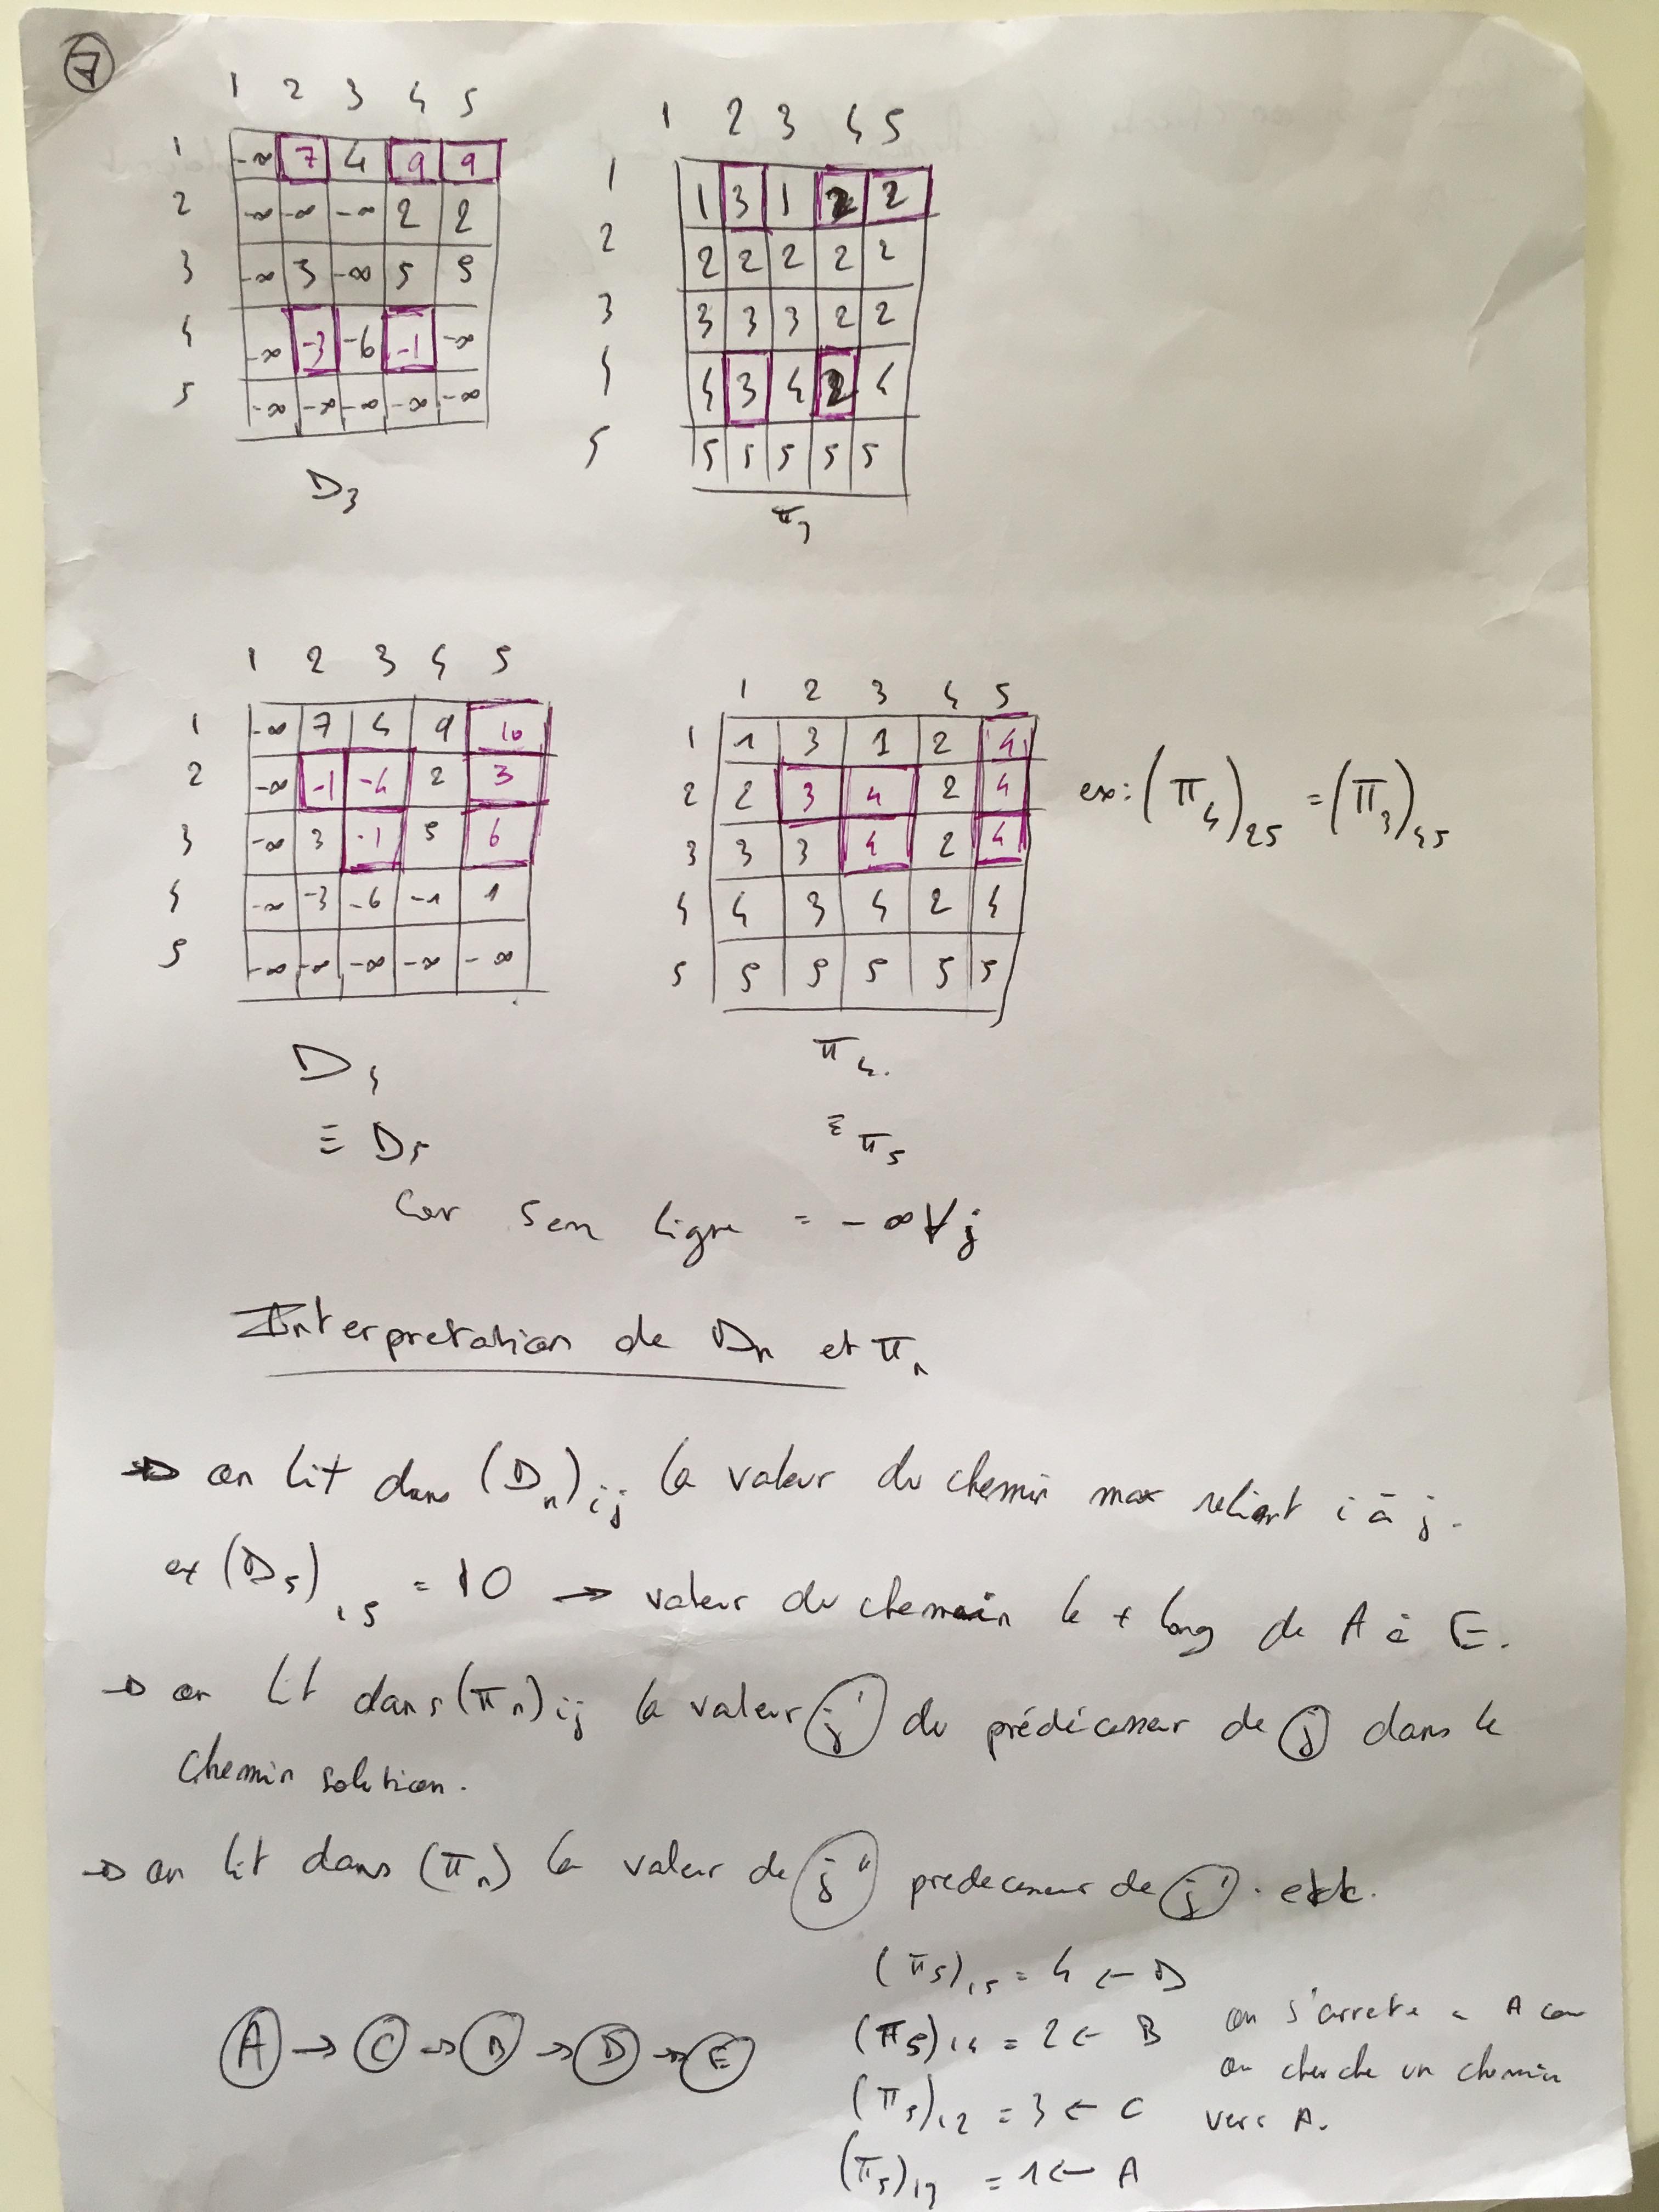 7
1 2 3 4 5
1 -∞ 7 4 9 9
2 -∞ -∞ -∞ 2 2
3 -∞ 3 -∞ 5 5
4 -∞ -3 -6 -1 -∞
5 -∞ -∞ -∞ -∞ -∞
D3
1 2 3 4 5
1 1 3 1 2 2
2 2 2 2 2 2
3 3 3 3 2 2
4 4 3 4 2 4
5 5 5 5 5 5
π3
1 2 3 4 5
1 -∞ 7 4 9 10
2 -∞ -1 -4 2 3
3 -∞ 3 -1 5 6
4 -∞ -3 -6 -1 1
5 -∞ -∞ -∞ -∞ -∞
D4
≡ D5
1 2 3 4 5
1 1 3 1 2 4
2 2 3 4 2 4
3 3 3 4 2 4
4 4 3 4 2 4
5 5 5 5 5 5
π4.
≡ π5
ex: (π4)25 = (π3)45
Car 5em ligne = -∞ ∀j
Interpretation de Dn et πn
→ on lit dans (Dn)ij la valeur du chemin max reliant i à j.
ex (D5)15 = 10 → valeur du chemin le + long de A à E.
→ on lit dans (πn)ij la valeur j' du prédécesseur de j dans le
chemin solution.
→ on lit dans (πn) la valeur de j" predecesseur de j'. etc.
(π5)15 = 4 ← D
(π5)14 = 2 ← B
(π5)12 = 3 ← C
(π5)13 = 1 ← A
on s'arrete a A car
on cherche un chemin
vers A.
A → C → B → D → E